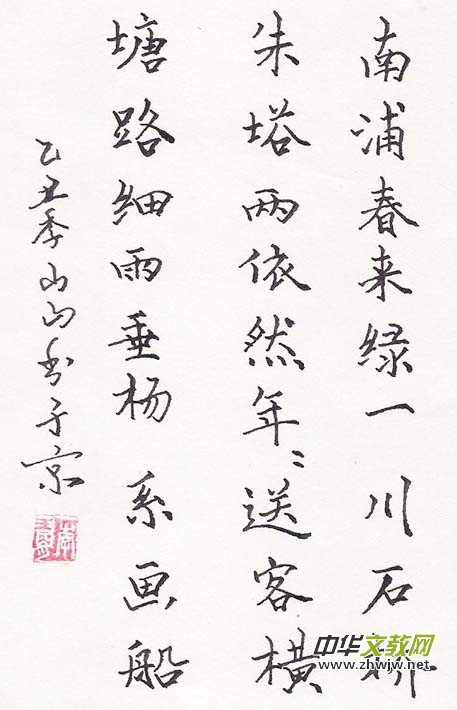 南浦春来绿一川石桥
朱塔两依然年〻送客横
塘路细雨垂杨系画船
乙丑季山于京
中华文教网
www.zhwjw.net